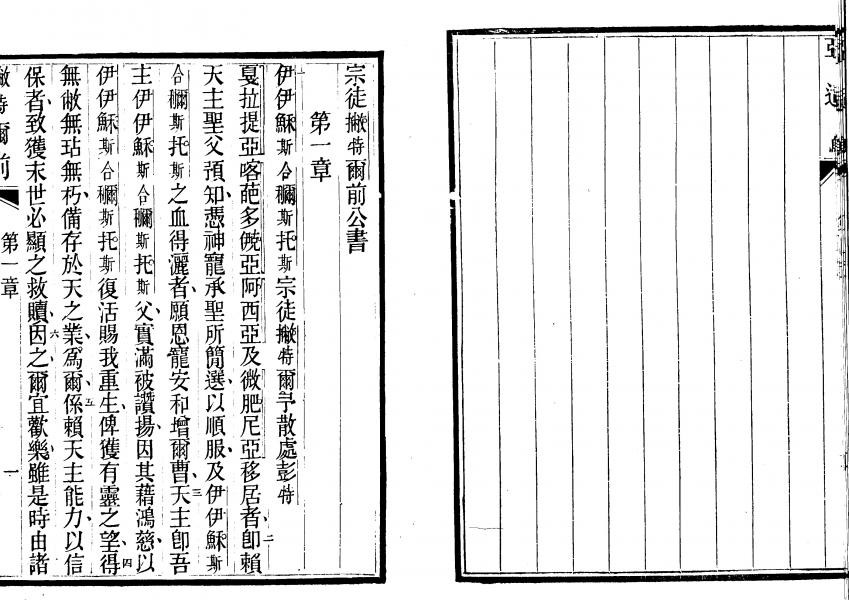 宗徒撇特爾前公書
第一章
一伊伊穌斯合𥕊斯托斯宗徒撇特爾予散處彭特
戛拉提亞喀葩多僥亞阿西亞及微肥尼亞移居者二卽賴
天主聖父預知憑神寵承聖所簡選以順服及伊伊穌斯
合𥕊斯托斯之血得灑者願恩寵安和增爾曹三天主卽吾
主伊伊穌斯合𥕊斯托斯父實滿被讚揚因其藉鴻慈以
伊伊穌斯合𥕊斯托斯復活賜我重生俾獲有靈之望四得
無敝無玷無朽備存於天之業爲爾五係賴天主能力以信
保者致獲末世必顯之救贖六因之爾宜歡樂雖是時由諸
撇特爾前 第一章 一